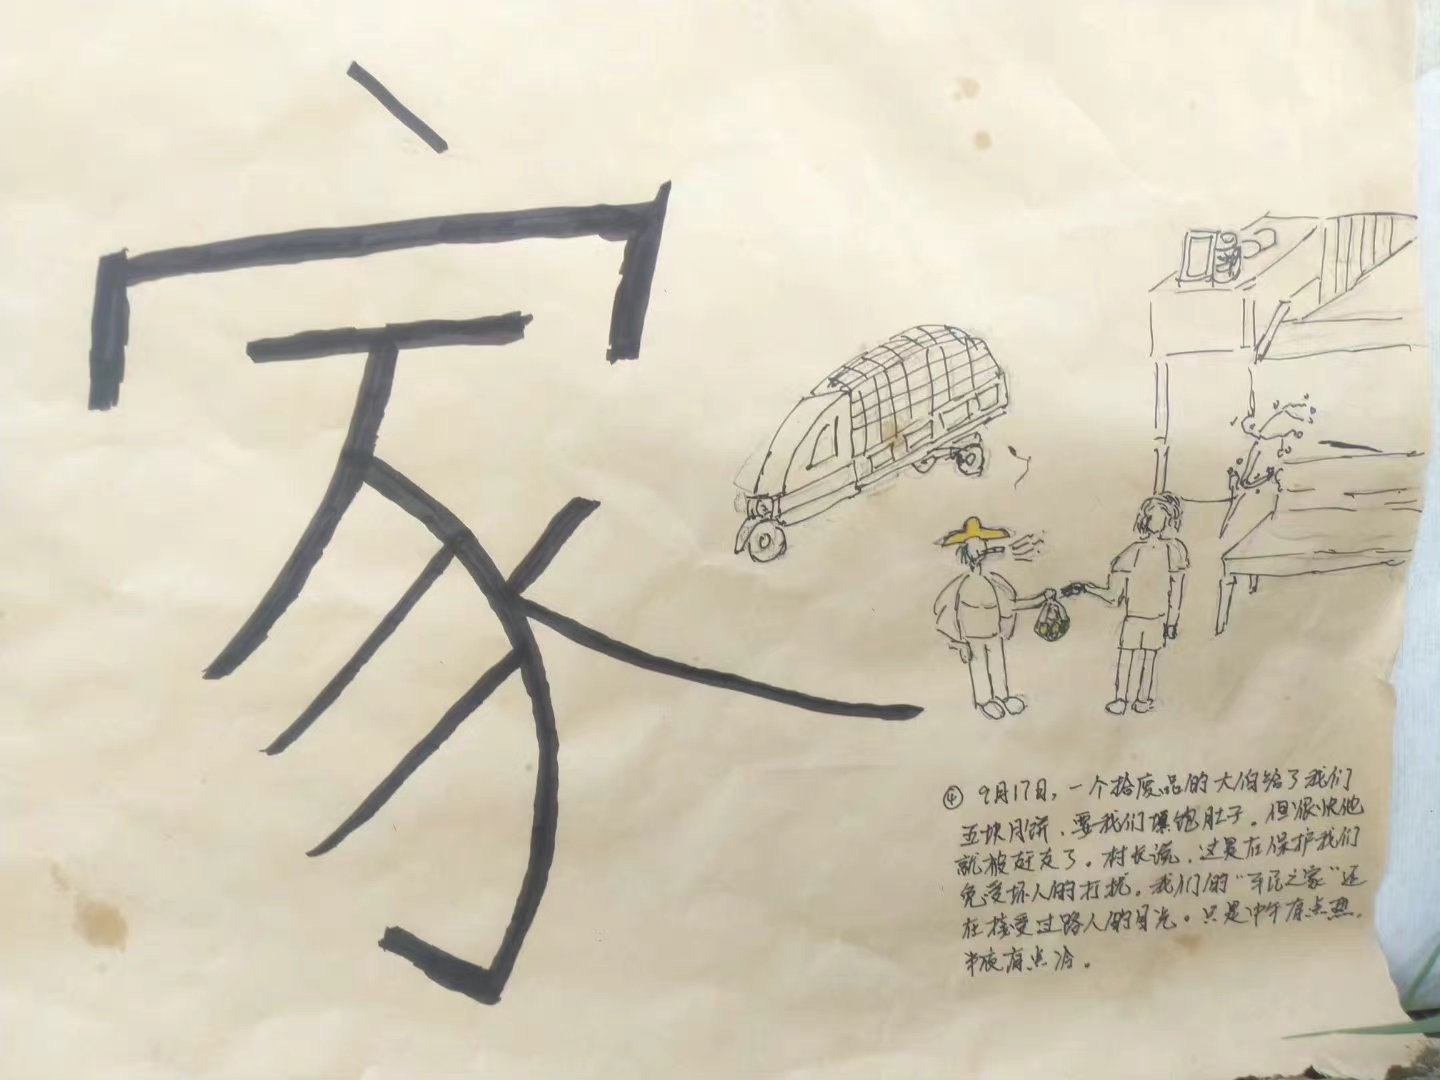 家
④ 9月17日，一个拾废品的大伯给了我们
五块月饼，要我们填饱肚子。但很快他
就被赶走了。村长说，这是在保护我们
免受坏人的打扰。我们的“平民之家”还
在接受过路人的目光。只是中午有点热，
半夜有点冷。